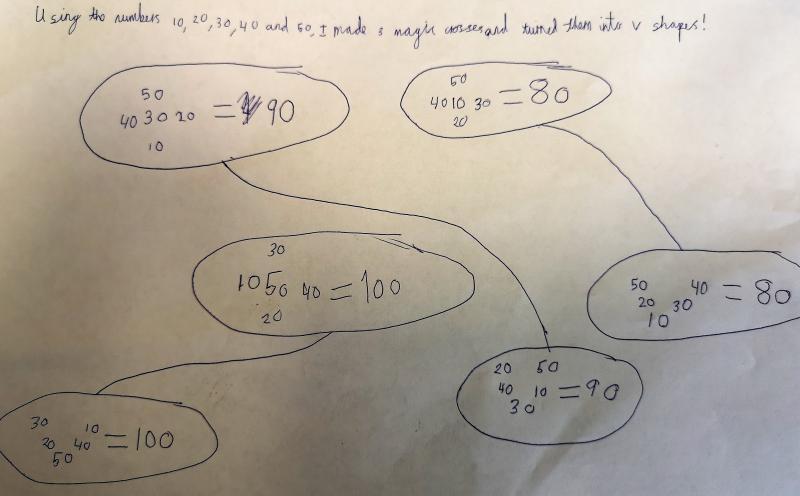 Using the numbers 10, 20, 30, 40 and 50, I made 3 magic crosses and turned them into V shapes!
50
40 30 20 = 90
10
50
40 10 30 = 80
20
30
10 50 40 = 100
20
50 40
20 30 = 80
10
20 50
40 10 = 90
30
30 10
20 40 = 100
50